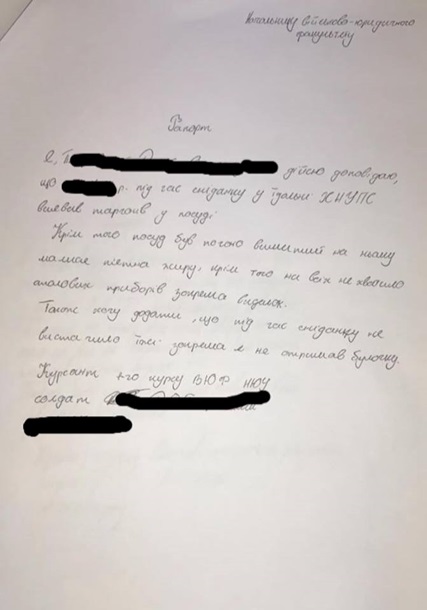 Начальнику військово-юридичного
факультету
Рапорт
Я, П
дійсно доповідаю,
що р. під час сніданку у їдальні ХНУПС
виявив тарганів у посуді.
Крім того посуд був погано вимитий на ньому
малися пятна жиру, крім того на всіх не хватило
столових приборів зокрема виделок.
Також хочу додати, що під час сніданку не
вистачило їжі зокрема я не отримав булочку.
Курсант 1-го курсу ВЮФ НЮУ
солдат